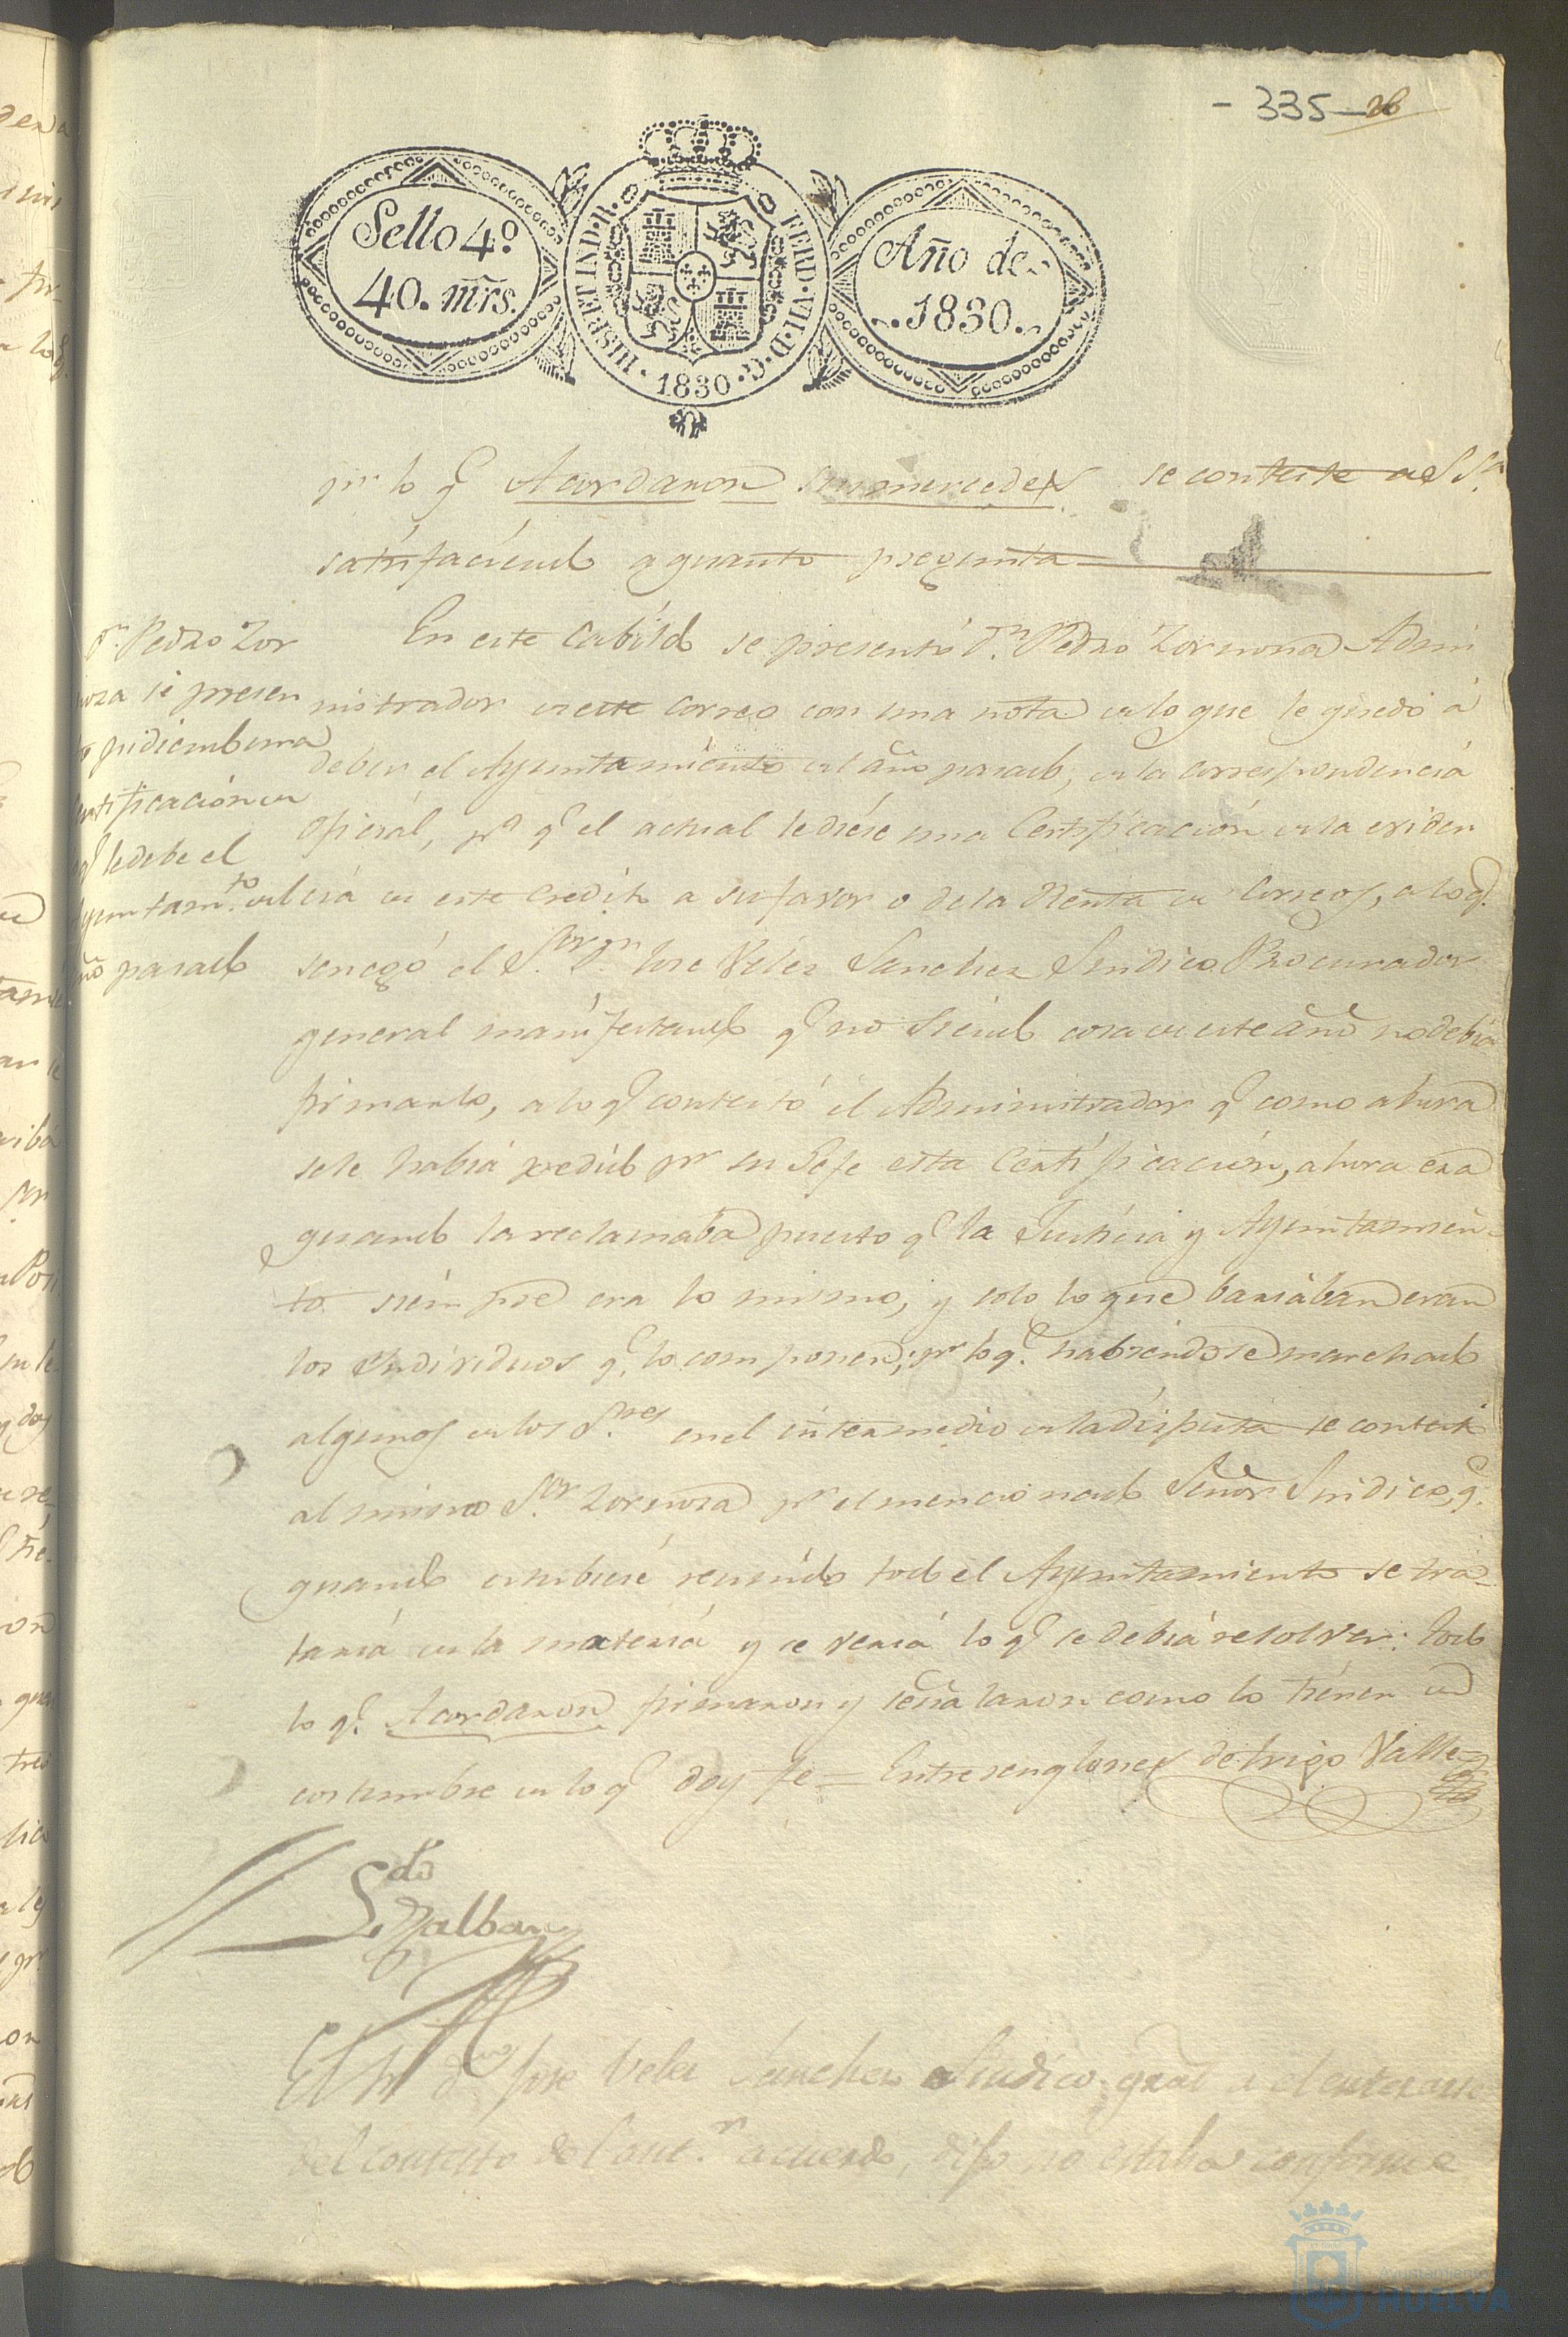 - 335 - 26
Sello 4º
40. mrs.
HISP. ET IND. R. FERD. VII. D. G. 1830
Año de
1830.
pr lo q.e Acordaron sus mercedes se conteste a S. Sa.
satisfaciendo a quanto pregunta
Dn. Pedro Zor
noza se presen
to pidiendo una
certificacion de
lo q.e le debe el
Ayuntamto. del
año pasado
En este Cabildo se presentó Dn. Pedro Zornoza Admi
nistrador de este Correo con una nota de lo que le quedó á
deber el Ayuntamiento el año pasado, de la correspondencia
oficial, pa. q.e el actual le diese una Certificación de la eviden
cia de este Credito a su favor o de la Renta de Correos, a lo q.e
se negó el Sor. Dn. Jose Velez Sanchez Sindico Procurador
general manifestando q.e no siendo cosa de este año no debia
firmarlo, a lo q.e contestó el Administrador q.e como ahora
se le habia pedido pr su Gefe esta Certificacion, ahora era
quando la reclamaba puesto q.e la Justicia y Ayuntamien-
to siempre era lo mismo, y solo lo que bariaban eran
los Yndividuos q.e lo componen; pr lo q.e habiendose marchado
algunos de los Sres en el intermedio de la disputa se contestó
al mismo Sor. Zornoza pr el mencionado Señor Sindico, q.e
quando estubiese reunido todo el Ayuntamiento se tra-
taria de la materia y se veria lo q.e se debia resolver: todo
lo q.e Acordaron firmaron y señalaron como lo tienen de
costumbre de lo q.e doy fe = Entrerenglones de trigo Valle
Ldo. Malban
El Sr Dn Jose Velez Sanchez Sindico gral a el enterarse
del contesto del antr. acuerdo, dijo no estaba conforme
Ayuntamiento de
HUELVA